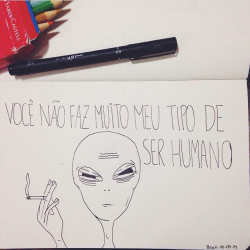 FABER-CASTELL
VOCÊ NÃO FAZ MUITO MEU TIPO DE
SER HUMANO